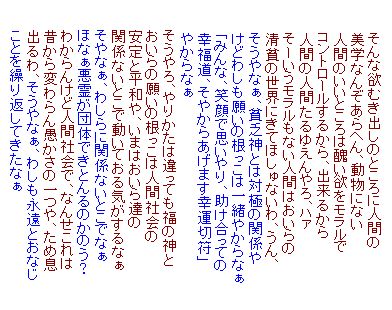 そんな欲むき出しのところに人間の
美学なんぞあらへん、動物にない
人間のいいところは醜い欲をモラルで
コントロールするから、出来るから
人間の人間たるゆえんやろ、ハァ
そーいうモラルもない人間はおいらの
清貧の世界にきてほしゅないわ、うん、
そうやなぁ、貧乏神とは対極の関係や
けどわしも願いの根っこは一緒やからなぁ
「みんな、笑顔で思いやり、助け合っての
幸福道、そやからあげます幸運切符」
やからなぁ
そうやろ、やりかたは違っても福の神と
おいらの願いの根っこは人間社会の
安定と平和や、いまはおいら達の
関係ないとこで動いておる気がするなぁ
そやなぁ、わしらに関係ないとこでなぁ
ほなぁ悪霊が団体できとんるのかのう?
わからんけど人間社会で、なんせこれは
昔から変わらん愚かさの一つや、ため息
出るわ、そうやなぁ、わしも永遠とおなじ
ことを繰り返してきたなぁ